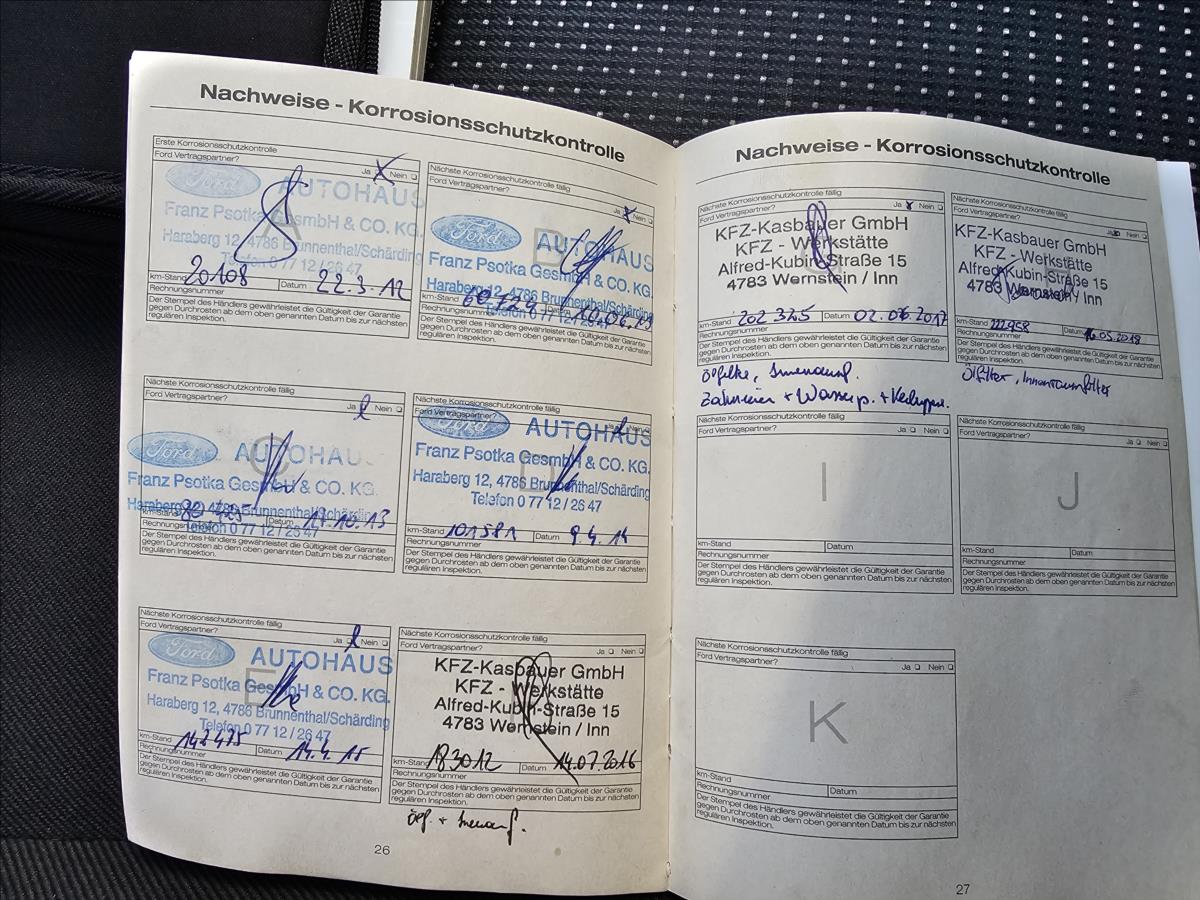 Nachweise - Korrosionsschutzkontrolle
Erste Korrosionsschutzkontrolle
Ford Vertragspartner? Ja Nein
Ford AUTOHAUS
Franz Psotka GesmbH & CO. KG.
Haraberg 12, 4786 Brunnenthal/Schärding
Telefon 0 77 12 / 26 47
A
km-Stand 20108 Datum 22.3.12
Rechnungsnummer
Der Stempel des Händlers gewährleistet die Gültigkeit der Garantie
gegen Durchrosten ab dem oben genannten Datum bis zur nächsten
regulären Inspektion.
Nächste Korrosionsschutzkontrolle fällig
Ford Vertragspartner? Ja Nein
Ford AUTOHAUS
Franz Psotka GesmbH & CO. KG.
Haraberg 12, 4786 Brunnenthal/Schärding
Telefon 0 77 12 / 26 47
B
km-Stand 60729 Datum
Rechnungsnummer
Der Stempel des Händlers gewährleistet die Gültigkeit der Garantie
gegen Durchrosten ab dem oben genannten Datum bis zur nächsten
regulären Inspektion.
Nächste Korrosionsschutzkontrolle fällig
Ford Vertragspartner? Ja Nein
Ford AUTOHAUS
Franz Psotka GesmbH & CO. KG.
Haraberg 12, 4786 Brunnenthal/Schärding
Telefon 0 77 12 / 26 47
C
km-Stand Datum
Rechnungsnummer
Der Stempel des Händlers gewährleistet die Gültigkeit der Garantie
gegen Durchrosten ab dem oben genannten Datum bis zur nächsten
regulären Inspektion.
Nächste Korrosionsschutzkontrolle fällig
Ford Vertragspartner? Ja Nein
Ford AUTOHAUS
Franz Psotka GesmbH & CO. KG.
Haraberg 12, 4786 Brunnenthal/Schärding
Telefon 0 77 12 / 26 47
D
km-Stand 101581 Datum 9.4.14
Rechnungsnummer
Der Stempel des Händlers gewährleistet die Gültigkeit der Garantie
gegen Durchrosten ab dem oben genannten Datum bis zur nächsten
regulären Inspektion.
Nächste Korrosionsschutzkontrolle fällig
Ford Vertragspartner? Ja Nein
Ford AUTOHAUS
Franz Psotka GesmbH & CO. KG.
Haraberg 12, 4786 Brunnenthal/Schärding
Telefon 0 77 12 / 26 47
E
km-Stand 142475 Datum 14.4.15
Rechnungsnummer
Der Stempel des Händlers gewährleistet die Gültigkeit der Garantie
gegen Durchrosten ab dem oben genannten Datum bis zur nächsten
regulären Inspektion.
Nächste Korrosionsschutzkontrolle fällig
Ford Vertragspartner? Ja Nein
KFZ-Kasbauer GmbH
KFZ - Werkstätte
Alfred-Kubin-Straße 15
4783 Wernstein / Inn
km-Stand 183012 Datum 14.07.2016
Rechnungsnummer
Der Stempel des Händlers gewährleistet die Gültigkeit der Garantie
gegen Durchrosten ab dem oben genannten Datum bis zur nächsten
regulären Inspektion.
26
Nachweise - Korrosionsschutzkontrolle
Nächste Korrosionsschutzkontrolle fällig
Ford Vertragspartner? Ja Nein
KFZ-Kasbauer GmbH
KFZ - Werkstätte
Alfred-Kubin-Straße 15
4783 Wernstein / Inn
km-Stand 202325 Datum 02.06.2017
Rechnungsnummer
Der Stempel des Händlers gewährleistet die Gültigkeit der Garantie
gegen Durchrosten ab dem oben genannten Datum bis zur nächsten
regulären Inspektion.
Zahnriemen + Wasserp. +
Nächste Korrosionsschutzkontrolle fällig
Ford Vertragspartner? Ja Nein
KFZ-Kasbauer GmbH
KFZ - Werkstätte
Alfred-Kubin-Straße 15
4783 Wernstein / Inn
km-Stand 222958 Datum 16.05.2018
Rechnungsnummer
Der Stempel des Händlers gewährleistet die Gültigkeit der Garantie
gegen Durchrosten ab dem oben genannten Datum bis zur nächsten
regulären Inspektion.
Ölfilter, Innenraumfilter
Nächste Korrosionsschutzkontrolle fällig
Ford Vertragspartner? Ja Nein
I
km-Stand Datum
Rechnungsnummer
Der Stempel des Händlers gewährleistet die Gültigkeit der Garantie
gegen Durchrosten ab dem oben genannten Datum bis zur nächsten
regulären Inspektion.
Nächste Korrosionsschutzkontrolle fällig
Ford Vertragspartner? Ja Nein
J
km-Stand Datum
Rechnungsnummer
Der Stempel des Händlers gewährleistet die Gültigkeit der Garantie
gegen Durchrosten ab dem oben genannten Datum bis zur nächsten
regulären Inspektion.
Nächste Korrosionsschutzkontrolle fällig
Ford Vertragspartner? Ja Nein
K
km-Stand Datum
Rechnungsnummer
Der Stempel des Händlers gewährleistet die Gültigkeit der Garantie
gegen Durchrosten ab dem oben genannten Datum bis zur nächsten
regulären Inspektion.
27